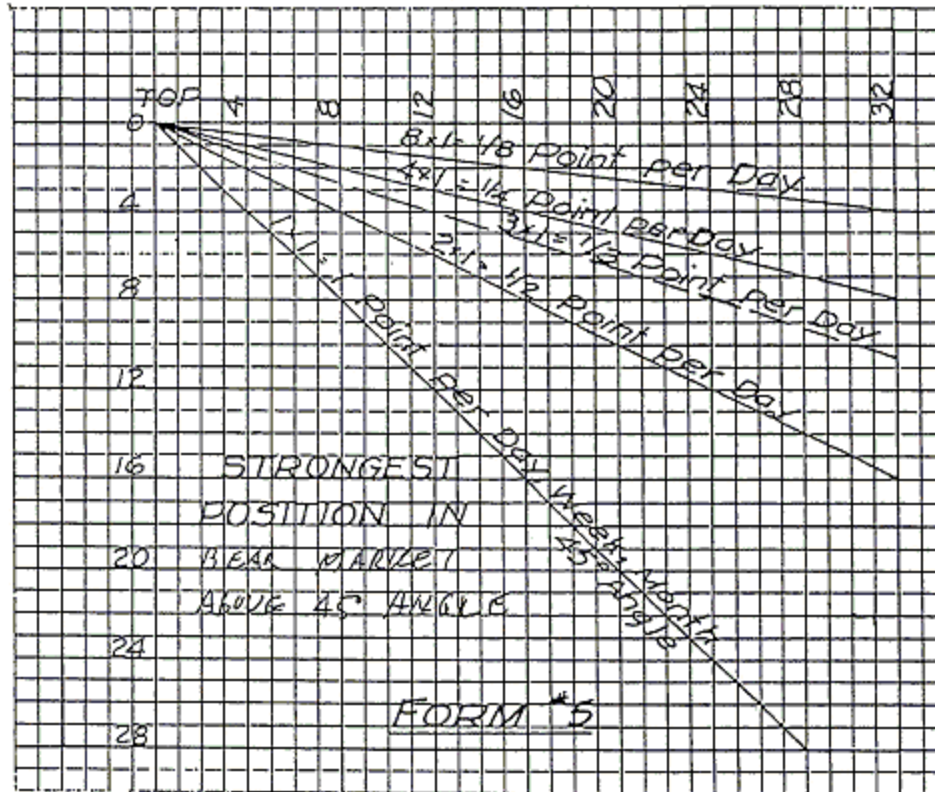 TOP 4 8 12 16 20 24 28 32
0
8x1=1/8 Point per Day
4x1=1/4 Point per Day
3x1=1/3 Point per Day
2x1=1/2 Point per Day
1x1=1 Point Per Day, Week, Month
45° Angle
4
8
12
16
20
24
28
STRONGEST
POSITION IN
BEAR MARKET
ABOVE 45 ANGLE
FORM #5